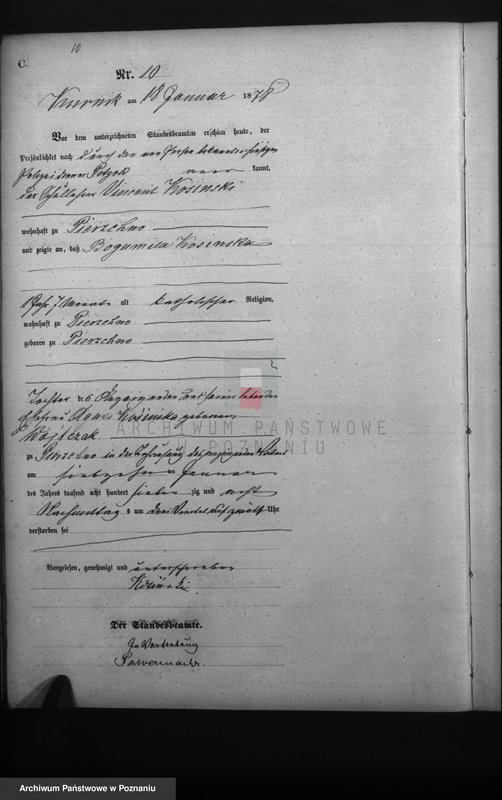 10
C.
Nr. 10
Kurnik am 18 Januar 1878
Vor dem unterzeichneten Standesbeamten erschien heute, der
Persönlichkeit nach durch den von Person bekannten hiesigen
Polizeidiener kannt,
der Schullehrer Vincent Kosinski
wohnhaft zu Pierzchno
und zeigte an, daß Bogumila Kosinska
1 Jahr 7 Monate alt katholischer Religion,
wohnhaft zu Pierzchno
geboren zu Pierzchno
Tochter des Anzeigenden und seiner lebenden
Ehefrau Kosinska geborenen
Wojtczak
zu Pierzchno in der Behausung des
am siebzehn ten Januar
des Jahres tausend acht hundert sieben zig und acht
Nachmittag s um drei Viertel auf zwölf Uhr
verstorben sei
Vorgelesen, genehmigt und unterschrieben
Kosinski
Der Standesbeamte.
In Vertretung
ARCHIWUM PAŃSTWOWE
W POZNANIU
Archiwum Państwowe w Poznaniu